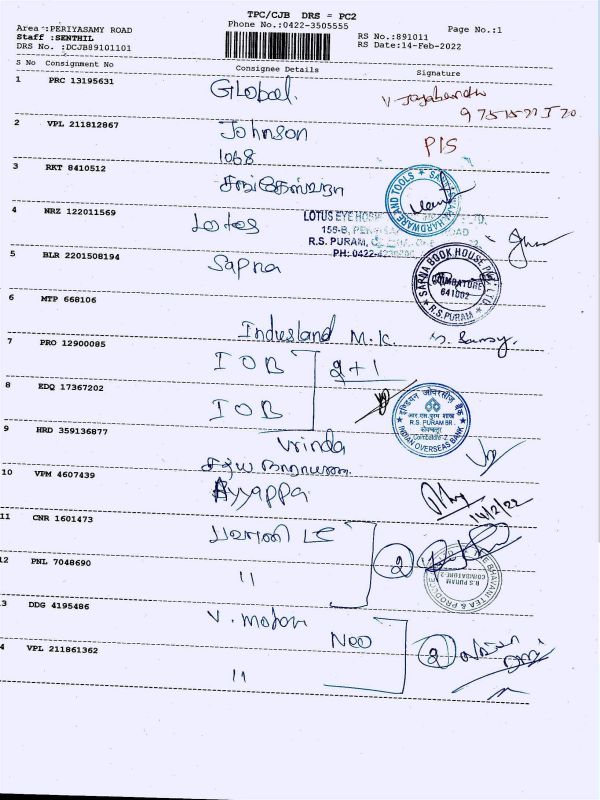 TPC/CJB DRS = PC2
Phone No.:0422-3505555
Page No.:1
Area :PERIYASAMY ROAD
Staff :SENTHIL
DRS No. :DCJB89101101
RS No.:891011
RS Date:14-Feb-2022
S No Consignment No Consignee Details Signature
1 PRC 13195631 Global.
2 VPL 211812867 Johnson
1068 PIS
3 RKT 8410512
HARDWARE AND TOOLS
4 NRZ 122011569 Lotus
LOTUS EYE
R.S. PURAM,
PH: 0422-
5 BLR 2201508194 Sapna
SAPNA BOOK HOUSE
COIMBATORE
641002
R.S.PURAM
6 MTP 668106
Indusland M.K.
7 PRO 12900085 IOB 2+1
8 EDQ 17367202 IOB
इण्डियन ओवरसीज़ बैंक
R.S. PURAM BR.
Coimbatore-2
INDIAN OVERSEAS BANK
9 HRD 359136877 Vrinda
10 VPM 4607439 Ayyappa
14/2/22
11 CNR 1601473 2
12 PNL 7048690 "
BHAVANI TEA & PRODUCE
R.S PURAM
COIMBATORE-2
13 DDG 4195486 V. motors
Neo 2
4 VPL 211861362 "